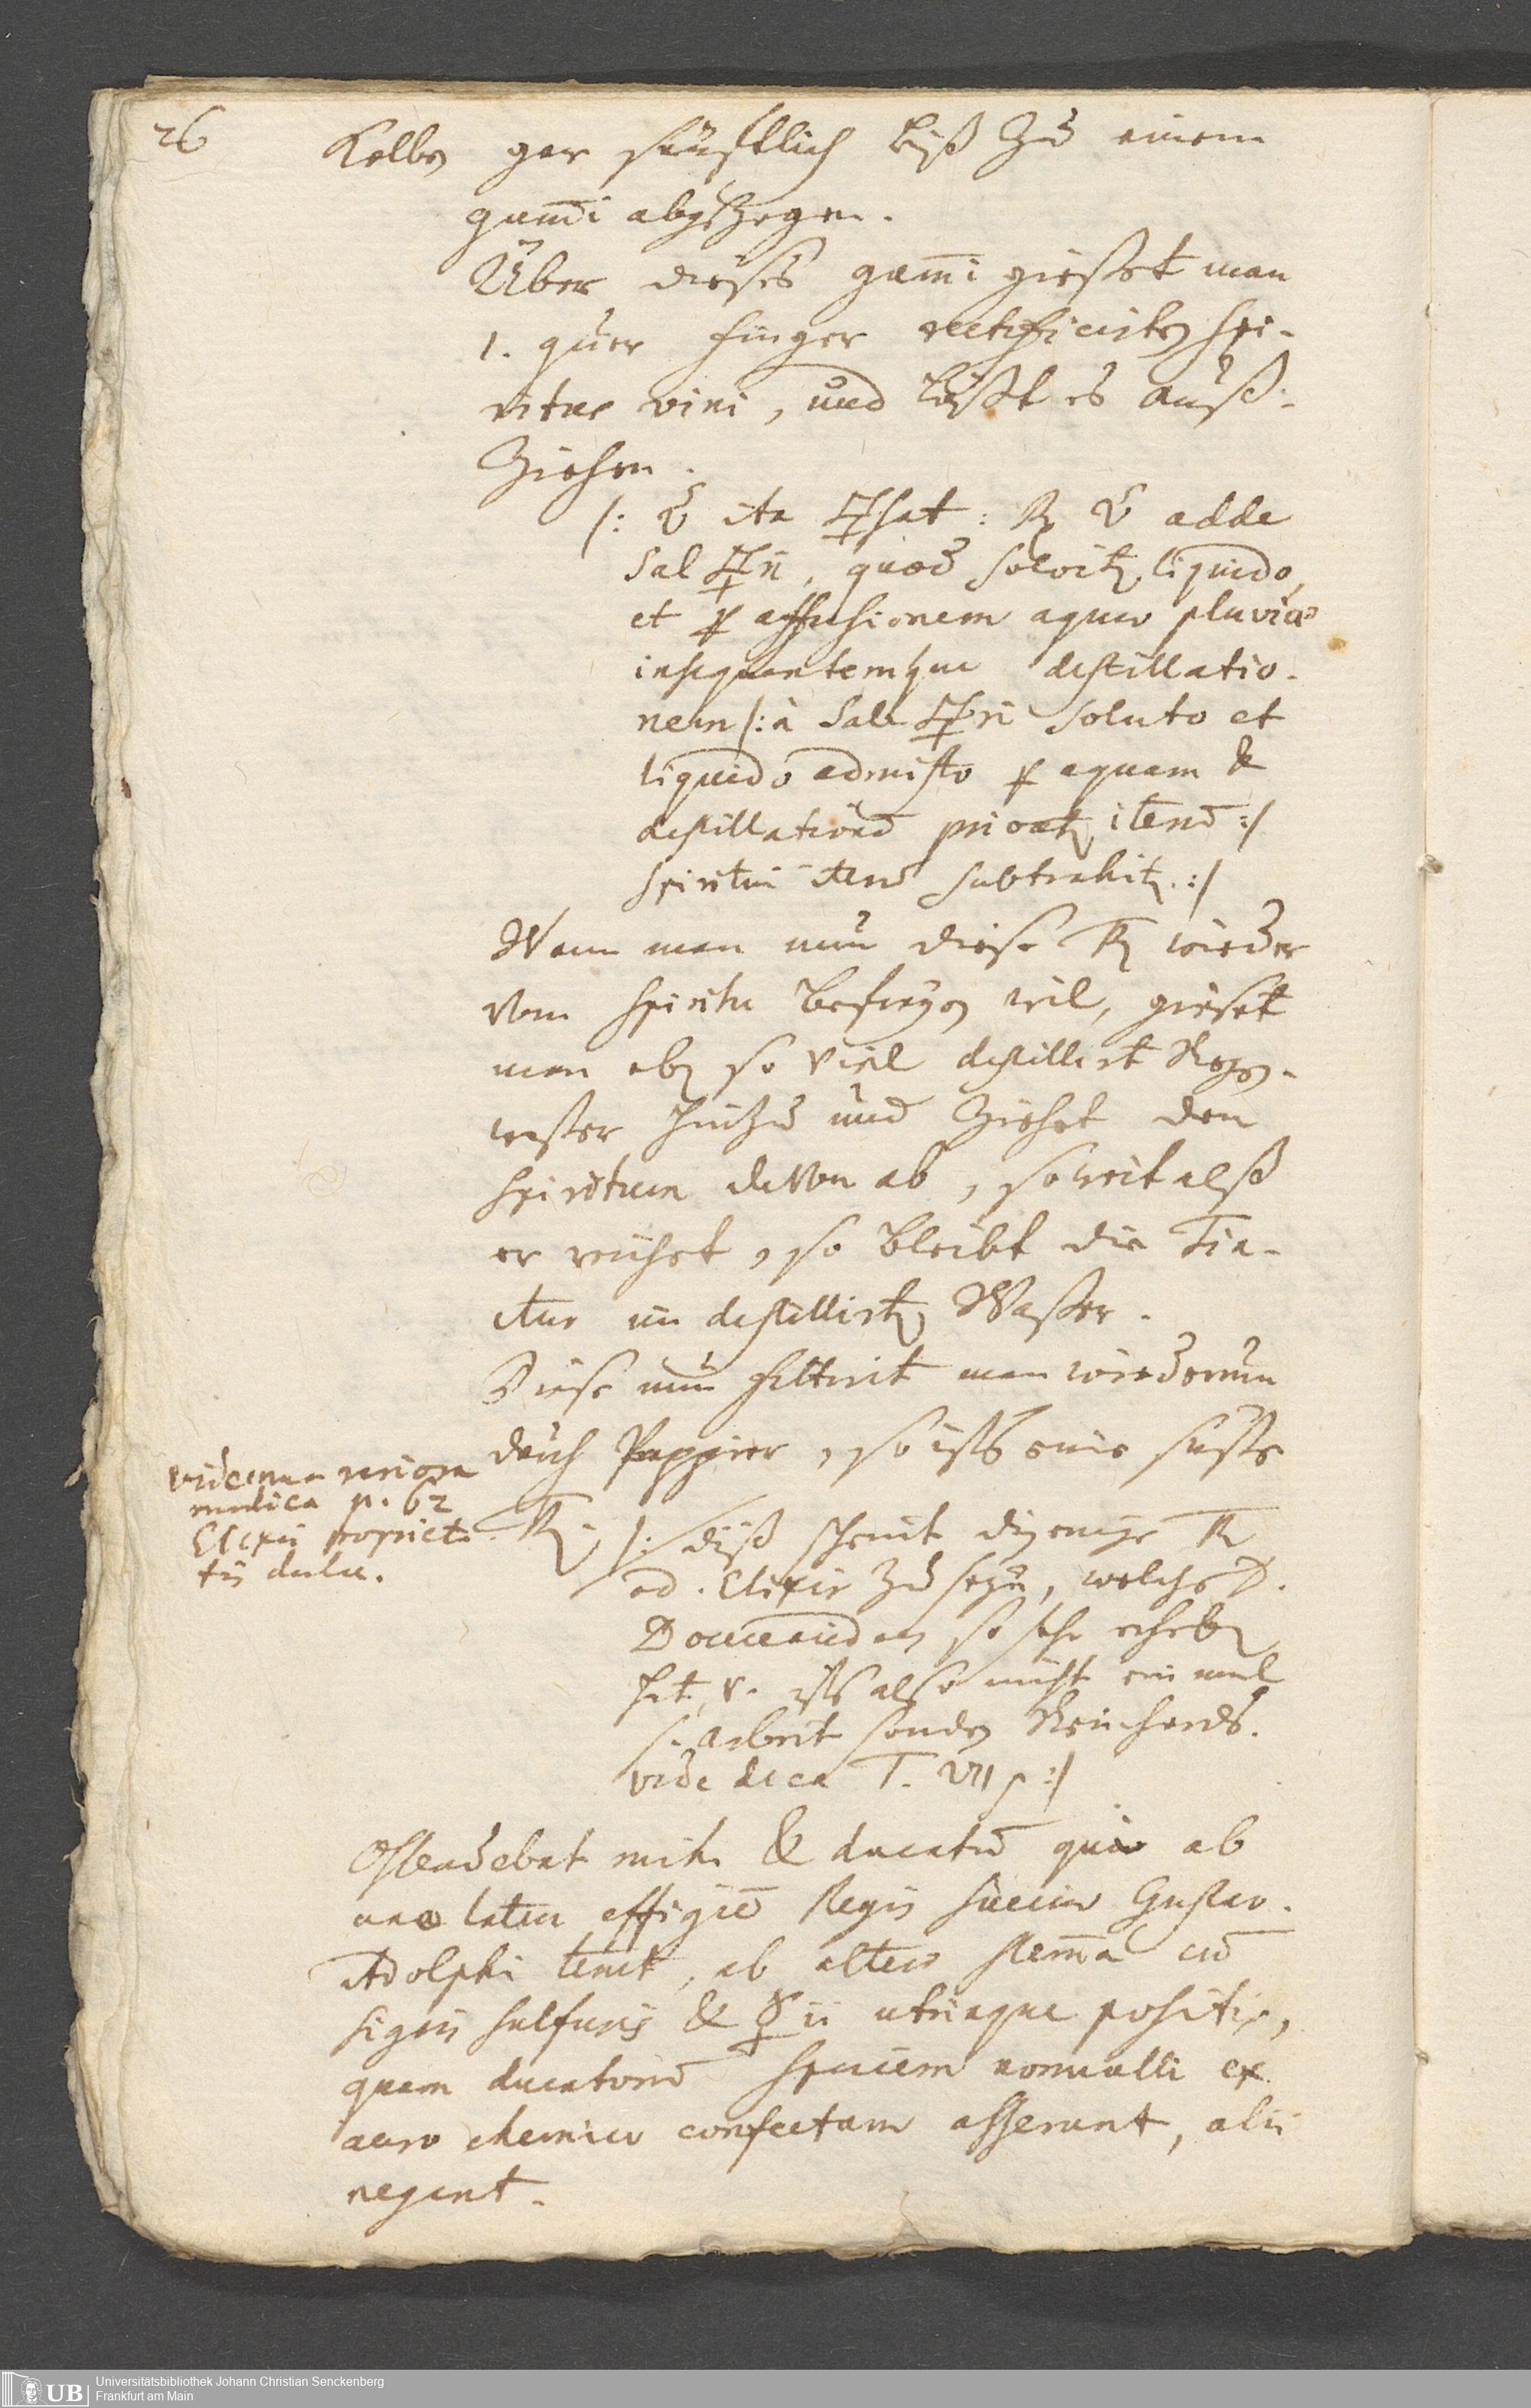 26
Kolben gar sänftlich biß zu einem
gum̄i abgezogen.
Über dieses gum̄i gießet man
1. quer finger rectificirten spi-
ritus vini, und läßt es auß-
ziehen.
/: ita hat: ℞ adde
Sal 🜿ri, quod solvitur liquido,
et p affusionem aquæ pluviæ
insequentemque destillatio-
nem /: à Sale 🜿ri soluto et
liquido admisto p aquam &
destillationē privatr iterū :/
spiritui iterū subtrahitr. :/
Wenn man nun diese wieder
vom spiritu befreyen wil, gießet
man eben so viel destillirt Regen-
waßer hinzu und ziehet den
spiritum davon ab, so weit alß
er reichet, so bleibt die Tin-
ctur im destillirten Waßer.
Diese nun filtrirt man wiederum
durch Pappier, so ists eine süße
/: diß scheint diejenige
od. Elixir zu seyn, welche D.
so sehr erheben
hat, u. ists also nicht ein mal
s. arbeit sondern Reinhards.
vide T. VII p :/
vide mea variora
medica p. 62
Elixir propriet
tis dulce.
Ostendebat mihi & ducatū qui ab
uno latere effigiē Regis Sueciæ Gustav.
Adolphi tenet, ab altero stem̄a cū
signis sulfuris & ☿ii utrinque positis,
quem ducatorū speciem nonnulli ex
auro chemico confectam asserunt, alii
negant.
Universitätsbibliothek Johann Christian Senckenberg
Frankfurt am Main
UB